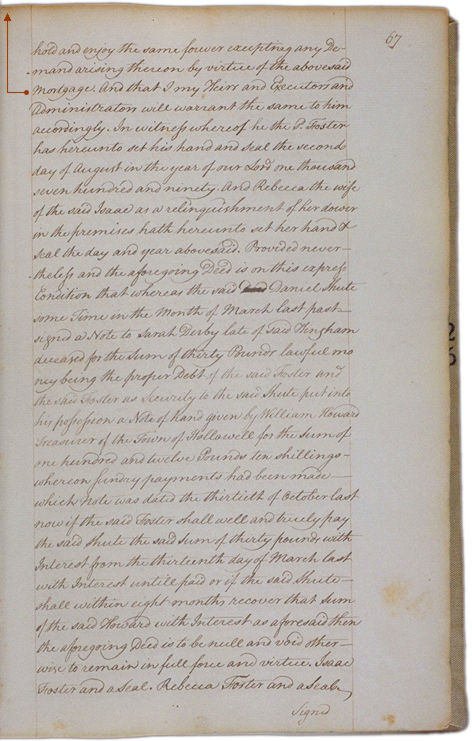 67
hold and enjoy the same forever excepting any De-
mand arising thereon by virtue of the abovesaid
Mortgage. And that I my Heirs and Executors and
Administrators will warrant the same to him
accordingly. In witness whereof he the P. Foster
has hereunto set his hand and seal the second
day of August in the year of our Lord one thousand
seven hundred and ninety. And Rebecca the wife
of the said Isaac as a relinguishment of her dower
in the premises hath hereunto set her hand &
seal the day and year abovesaid. Provided never-
theless and the aforegoing Deed is on this express
Condition that whereas the said Daniel Shute
some Time in the Month of March last past
signed a Note to Sarah Derby late of said Hingham
deceased for the Sum of thirty Pounds lawful mo
ney being the proper Debt of the said Foster and
the said Foster as Security to the said Shute put into
his possession a Note of hand given by William Howard
Treasurer of the Town of Hallowell for the sum of
one hundred and twelve Pounds ten shillings
whereon sundry payments had been made
which note was dated the thirtieth of October last
now if the said Foster shall well and truely pay
the said Shute the said sum of thirty pounds with
Interest from the thirteenth day of March last
with Interest untill paid or if the said Shute
shall within eight months recover that Sum
of the said Howard with Interest as aforesaid then
the aforegoing Deed is to be null and void other-
wise to remain in full force and virtue. Isaac
Foster and a Seal. Rebecca Foster and a Seal
Signd